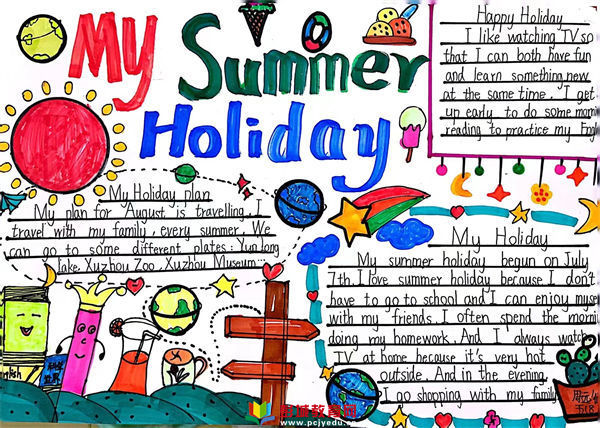 My Summer
Holiday
Happy Holiday
I like watching TV so
that I can both have fun
and learn something new
at the same time. I get
up early to do some
reading to practice my
My Holiday plan
My plan for August is travelling. I
travel with my family every summer. We
can go to some different plates: Yun long
lake. Xuzhou Zoo. Xuzhou Museum...
My Holiday
My summer holiday begun on July
7th. I love summer holiday because I don't
have to go to school and I can enjoy
with my friends. I often spend the
doing my homework. And I always watch
TV at home because it's very hot
outside. And in the evening,
I go shopping with my family
www.pcjyedu.com